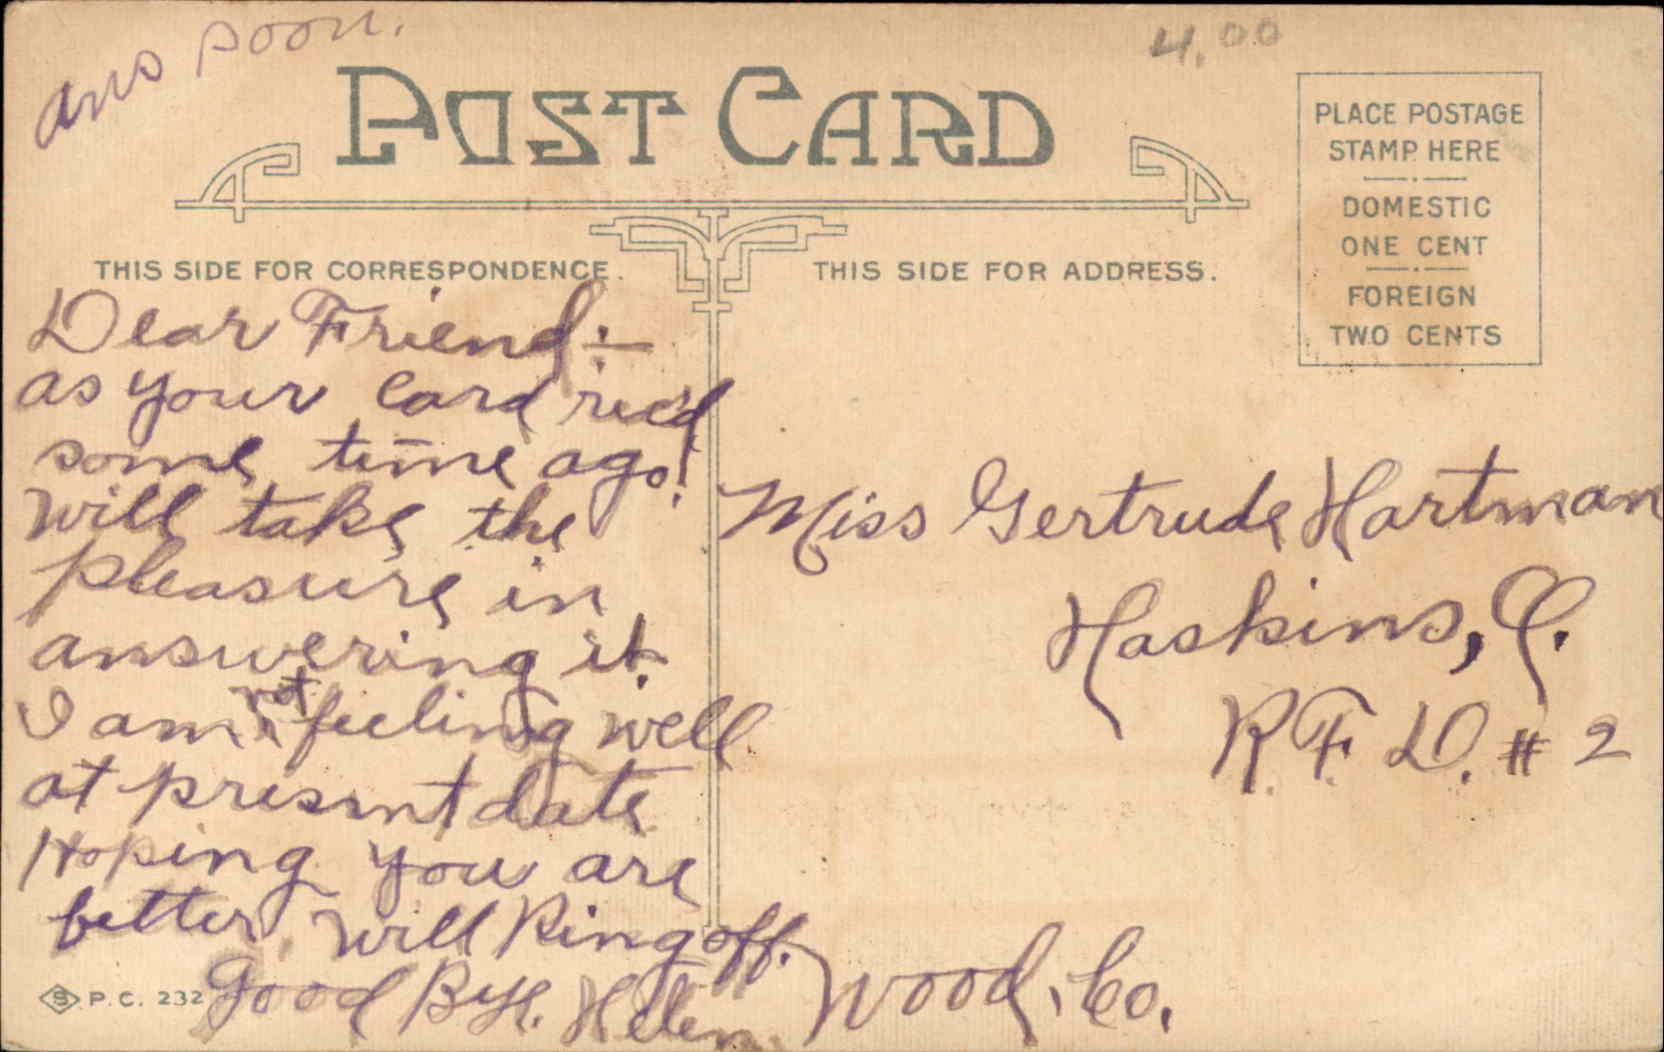 ans soon.
4.00
POST CARD
PLACE POSTAGE
STAMP HERE
DOMESTIC
ONE CENT
FOREIGN
TWO CENTS
THIS SIDE FOR CORRESPONDENCE.
THIS SIDE FOR ADDRESS.
Dear Friend:—
as your card rec'd
some time ago!
will take the
pleasure in
answering it.
I am not feeling well
at present date
Hoping you are
better will Ring off.
Good Bye. Helen
Miss Gertrude Hartman
Haskins, O.
R. F. D. # 2
Wood, Co.
S P.C. 232